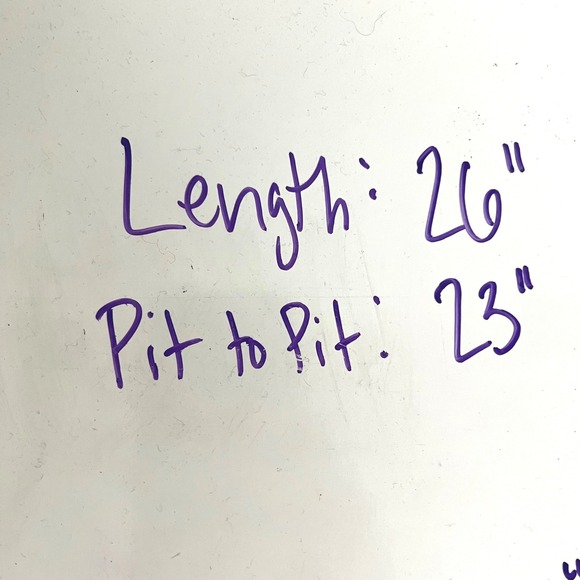 Length: 26"
Pit to Pit: 23"